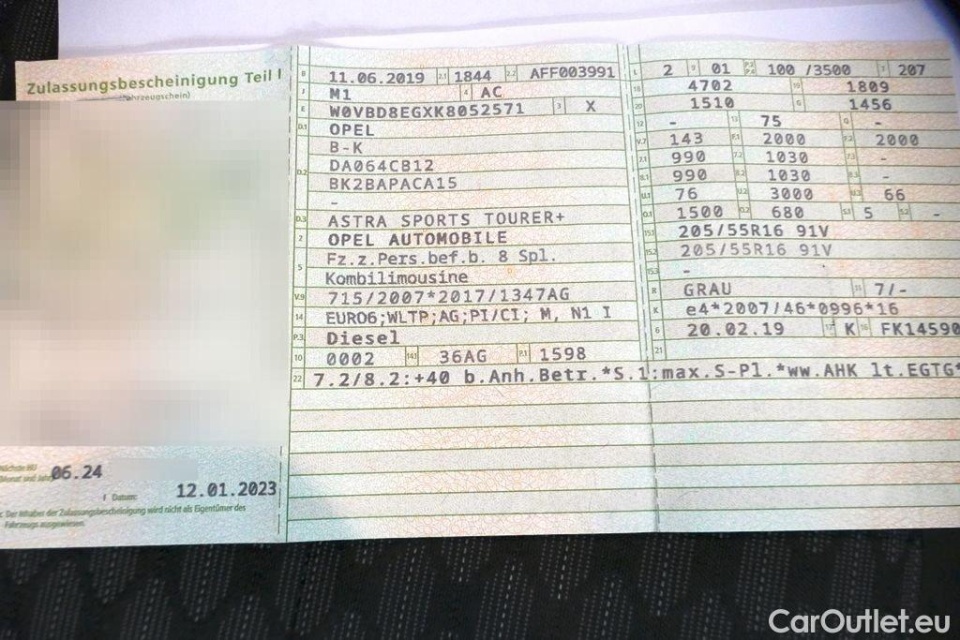 Zulassungsbescheinigung Teil I
(Fahrzeugschein)
B 11.06.2019 2.1 1844 2.2 AFF003991
J M1 4 AC
E W0VBD8EGXK8052571 3 X
D.1 OPEL
B-K
D.2 DA064CB12
BK2BAPACA15
-
D.3 ASTRA SPORTS TOURER+
2 OPEL AUTOMOBILE
5 Fz.z.Pers.bef.b. 8 Spl.
Kombilimousine
V.9 715/2007*2017/1347AG
14 EURO6;WLTP;AG;PI/CI; M, N1 I
P.3 Diesel
10 0002 14.1 36AG P.1 1598
22 7.2/8.2:+40 b.Anh.Betr.*S.1:max.S-Pl.*ww.AHK lt.EGTG*
L 2 9 01 P.2 P.4 100 /3500 T 207
18 4702 19 1809
20 1510 G 1456
12 - 13 75 Q -
V.7 143 F.1 2000 F.2 2000
7.1 990 7.2 1030 7.3 -
8.1 990 8.2 1030 8.3 -
U.1 76 U.2 3000 U.3 66
O.1 1500 O.2 680 S.1 5 S.2 -
15.1 205/55R16 91V
15.2 205/55R16 91V
15.3 -
R GRAU 11 7/-
K e4*2007/46*0996*16
6 20.02.19 17 K 16 FK14590
21
Nächste HU
Monat und Jahr 06.24
I Datum: 12.01.2023
Der Inhaber der Zulassungsbescheinigung wird nicht als Eigentümer des
Fahrzeugs ausgewiesen.
CarOutlet.eu